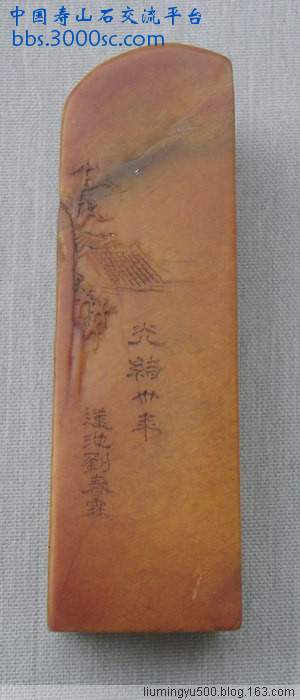 中国寿山石交流平台
bbs.3000sc.com
光緒卅年
蓮池劉春霖
liumingyu500.blog.163.com